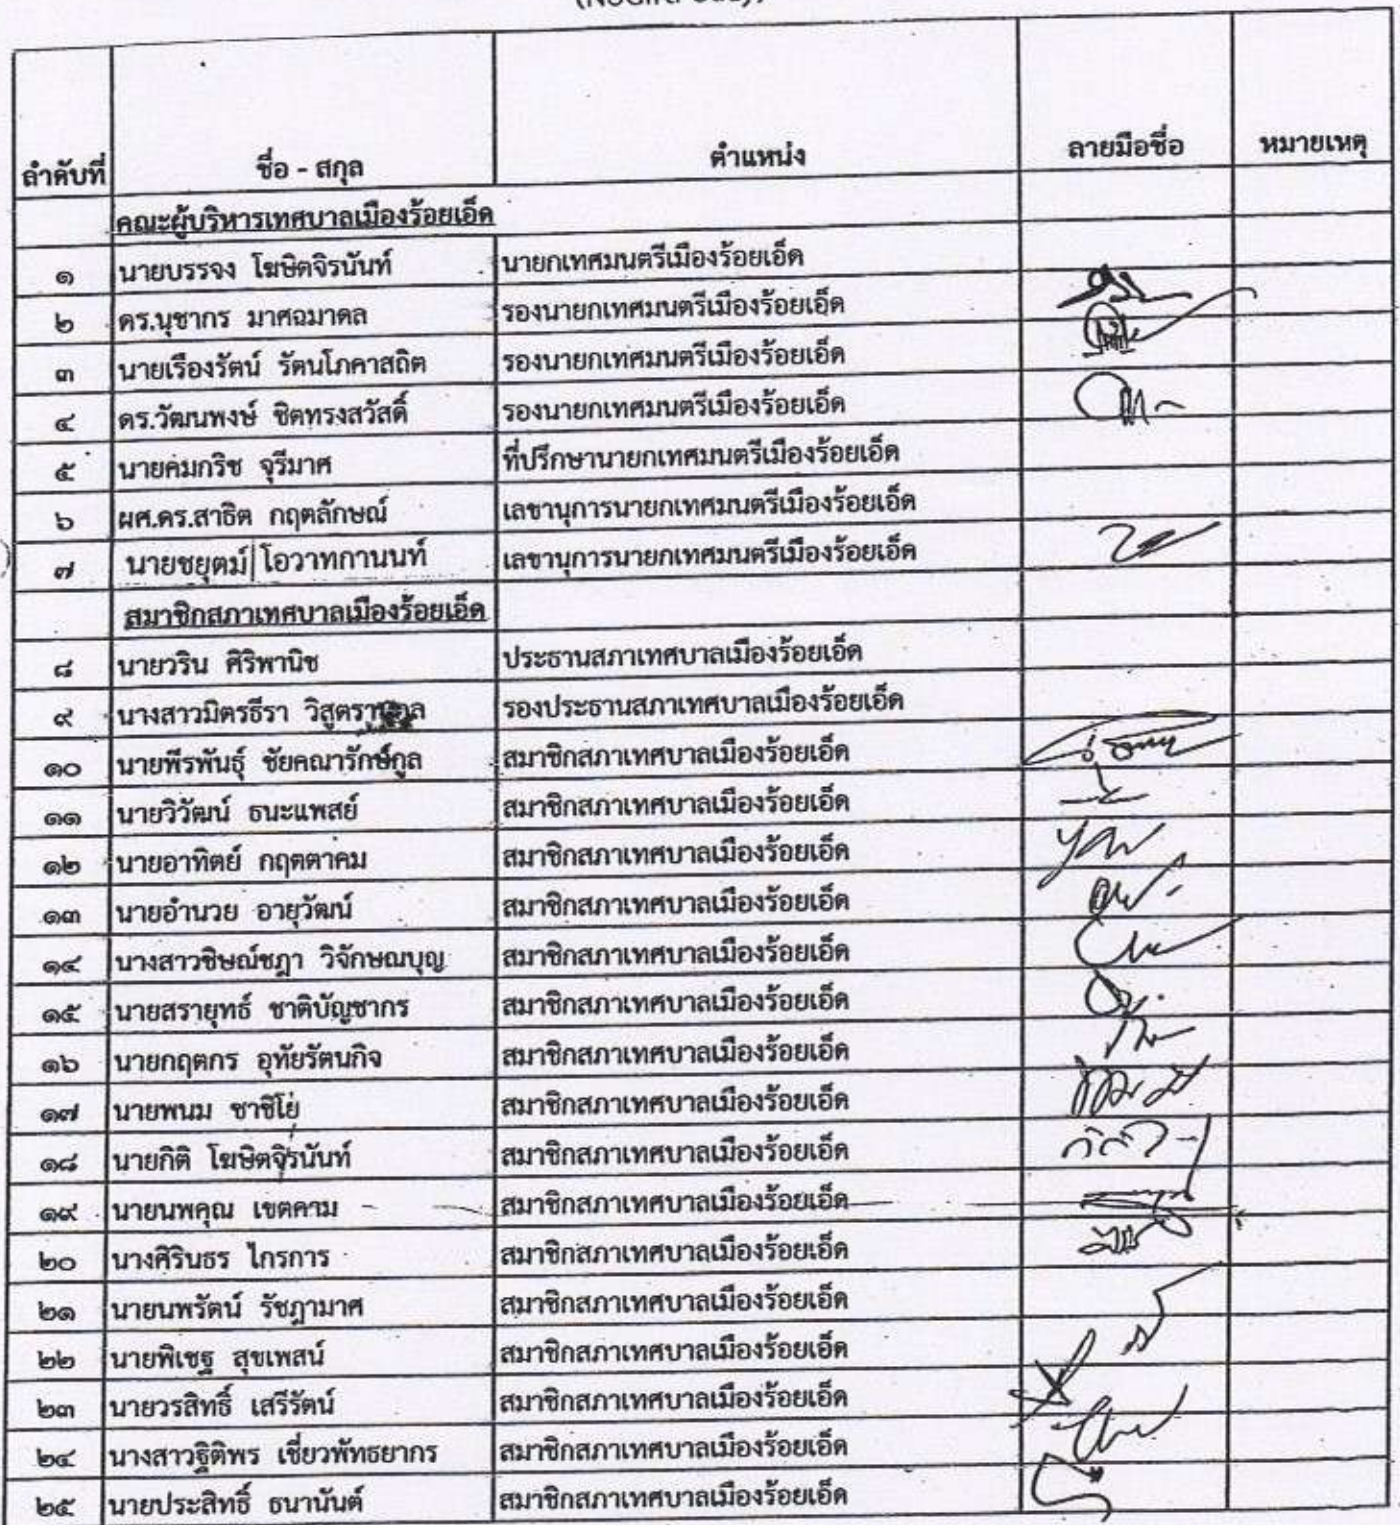 ลำดับที่ ชื่อ - สกุล ตำแหน่ง ลายมือชื่อ หมายเหตุ
คณะผู้บริหารเทศบาลเมืองร้อยเอ็ด
๑ นายบรรจง โฆษิตจิรนันท์ นายกเทศมนตรีเมืองร้อยเอ็ด
๒ ดร.นุชากร มาศฉมาดล รองนายกเทศมนตรีเมืองร้อยเอ็ด
๓ นายเรืองรัตน์ รัตนโภคาสถิต รองนายกเทศมนตรีเมืองร้อยเอ็ด
๔ ดร.วัฒนพงษ์ ชิตทรงสวัสดิ์ รองนายกเทศมนตรีเมืองร้อยเอ็ด
๕ นายคมกริช จุรีมาศ ที่ปรึกษานายกเทศมนตรีเมืองร้อยเอ็ด
๖ ผศ.ดร.สาธิต กฤตลักษณ์ เลขานุการนายกเทศมนตรีเมืองร้อยเอ็ด
๗ นายชยุตม์ โอวาทกานนท์ เลขานุการนายกเทศมนตรีเมืองร้อยเอ็ด
สมาชิกสภาเทศบาลเมืองร้อยเอ็ด
๘ นายวริน ศิริพานิช ประธานสภาเทศบาลเมืองร้อยเอ็ด
๙ นางสาวมิตรธีรา รองประธานสภาเทศบาลเมืองร้อยเอ็ด
๑๐ นายพีรพันธุ์ ชัยคณารักษ์กูล สมาชิกสภาเทศบาลเมืองร้อยเอ็ด
๑๑ นายวิวัฒน์ ธนะแพสย์ สมาชิกสภาเทศบาลเมืองร้อยเอ็ด
๑๒ นายอาทิตย์ กฤตตาคม สมาชิกสภาเทศบาลเมืองร้อยเอ็ด
๑๓ นายอำนวย อายุวัฒน์ สมาชิกสภาเทศบาลเมืองร้อยเอ็ด
๑๔ นางสาวชิษณ์ชฎา วิจักษณบุญ สมาชิกสภาเทศบาลเมืองร้อยเอ็ด
๑๕ นายสรายุทธ์ ชาติบัญชากร สมาชิกสภาเทศบาลเมืองร้อยเอ็ด
๑๖ นายกฤตกร อุทัยรัตนกิจ สมาชิกสภาเทศบาลเมืองร้อยเอ็ด
๑๗ นายพนม ชาชิโย่ สมาชิกสภาเทศบาลเมืองร้อยเอ็ด
๑๘ นายกิติ โฆษิตจิรนันท์ สมาชิกสภาเทศบาลเมืองร้อยเอ็ด
๑๙ นายนพคุณ เขตคาม สมาชิกสภาเทศบาลเมืองร้อยเอ็ด
๒๐ นางศิรินธร ไกรการ สมาชิกสภาเทศบาลเมืองร้อยเอ็ด
๒๑ นายนพรัตน์ รัชฎามาศ สมาชิกสภาเทศบาลเมืองร้อยเอ็ด
๒๒ นายพิเชฐ สุขเพสน์ สมาชิกสภาเทศบาลเมืองร้อยเอ็ด
๒๓ นายวรสิทธิ์ เสรีรัตน์ สมาชิกสภาเทศบาลเมืองร้อยเอ็ด
๒๔ นางสาวฐิติพร เชี่ยวพัทธยากร สมาชิกสภาเทศบาลเมืองร้อยเอ็ด
๒๕ นายประสิทธิ์ ธนานันต์ สมาชิกสภาเทศบาลเมืองร้อยเอ็ด